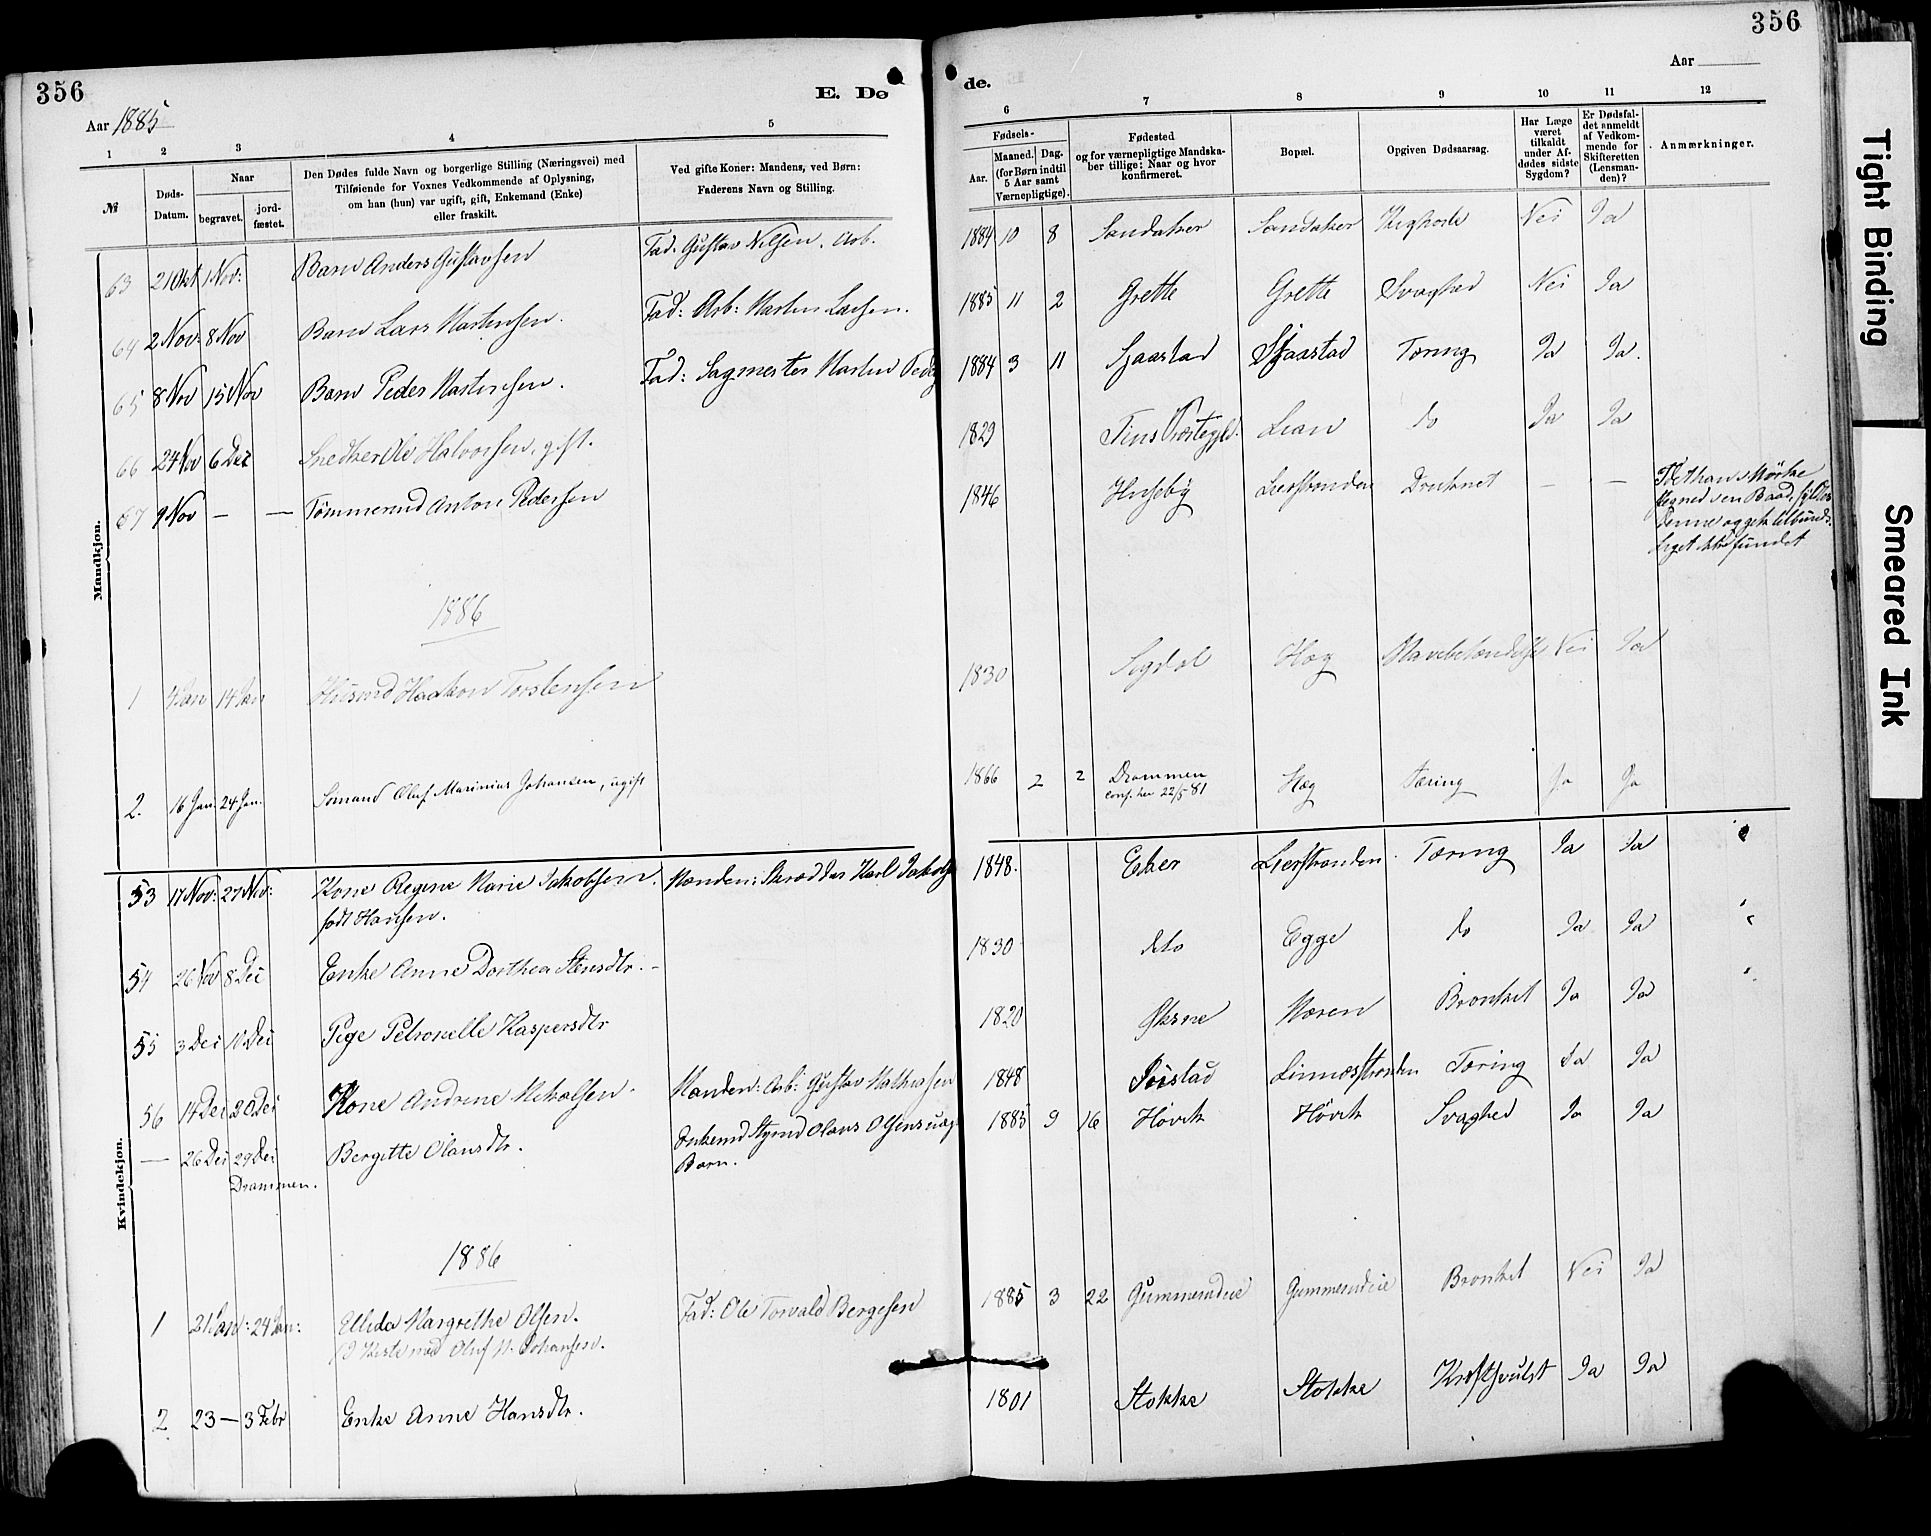 356
Aar 1885
E. Dø
1 2 3 4 5
№
Døds-
Datum.
Naar
begravet.
jord-
fæstet.
Den Dødes fulde Navn og borgerlige Stilling (Næringsvei) med
Tilføiende for Voxnes Vedkommende af Oplysning,
om han (hun) var ugift, gift, Enkemand (Enke)
eller fraskilt.
Ved gifte Koner: Mandens, ved Børn:
Faderens Navn og Stilling.
Mandkjøn.
63 21 Okt 1 Nov: Barn Anders Gustavsen Fad. Gustav Nilsen. Arb.
64 2 Nov: 8 Nov Barn Lars Martinsen. Fad: Arb: Martin Larsen.
65 8 Nov 15 Nov Barn Peder Martinsen. Fad: Sagmester Martin
66 24 Nov 6 Dec Snedker Ole Halvorsen, gift.
67 9 Nov — — Tømmermd Anton Pedersen
1886
1 14 Jan Husmd Haakon Torstensen
2. 16 Jan. 24 Jan. Sømand Oluf Marinius Johansen, ugift
Kvindekjøn.
53 17 Nov: 27 Nov: Kone Regine Marie Jakobsen. Manden: Skrædder Karl Jakobs
født Hansen.
54 26 Nov 8 Dec Enke Anne Dorthea Stensdtr. -
55 3 Dec 10 Dec Pige Petronelle Kaspersdtr
56 14 Dec 20 Dec Kone Andrine Nikolsen. Manden: Arb: Gustav Mathiesen
— 26 Dec 29 Dec Bergitte Olausdtr. Enkemd Styrmd Olaus Olsens uæg.
Drammen. Barn.
1886
1 21 Jan: 24 Jan: Ellida Margrethe Olsen. Fad: Ole Torvald Bergesen
Oluf M. Johansen.
2 23 — 3 Febr Enke Anne Hansdtr.
356
de.
Aar
6 7 8 9 10 11 12
Fødsels-
Aar.
Maaned. Dag.
(for Børn indtil
5 Aar samt
Værnepligtige).
Fødested
og for værnepligtige Mandska-
ber tillige: Naar og hvor
konfirmeret.
Bopæl.
Opgiven Dødsaarsag.
Har Læge
været
tilkaldt
under Af-
dødes sidste
Sygdom?
Er Dødsfal-
det anmeldt
af Vedkom-
mende for
Skifteretten
(Lensman-
den)?
Anmærkninger.
1884 10 8 Sandaker Sandaker Kighoste Nei Ja
1885 11 2 Grette Grette Svaghed Nei Ja
1884 3 11 Gjaastad Gjaastad Tæring Ja Ja.
1829 Tins Præstegjld. Lian do Ja Ja
1846 Huseby Lierstranden Druknet — —
denne og gik tilbunds.
Liget ikke fundet
1830 Sigdal Hæg Nei Ja
1866 2 2 Drammen Hæg Tæring Ja Ja
conf. her 22/5 81
1848. Eker Lierstranden. Tæring Ja Ja
1830 dito Egge do Ja Ja
1820 Øksne Møren Bronkit Ja Ja
1848 Linnæsstranden Tæring Ja Ja
1885 9 16 Høvik Høvik Svaghed Ja Ja
1885 3 22 Gummerudeie Gummerudeie Bronkit Nei Ja
1801 Stokke Stokke Kræftsvulst Ja Ja
Tight Binding
Smeared Ink